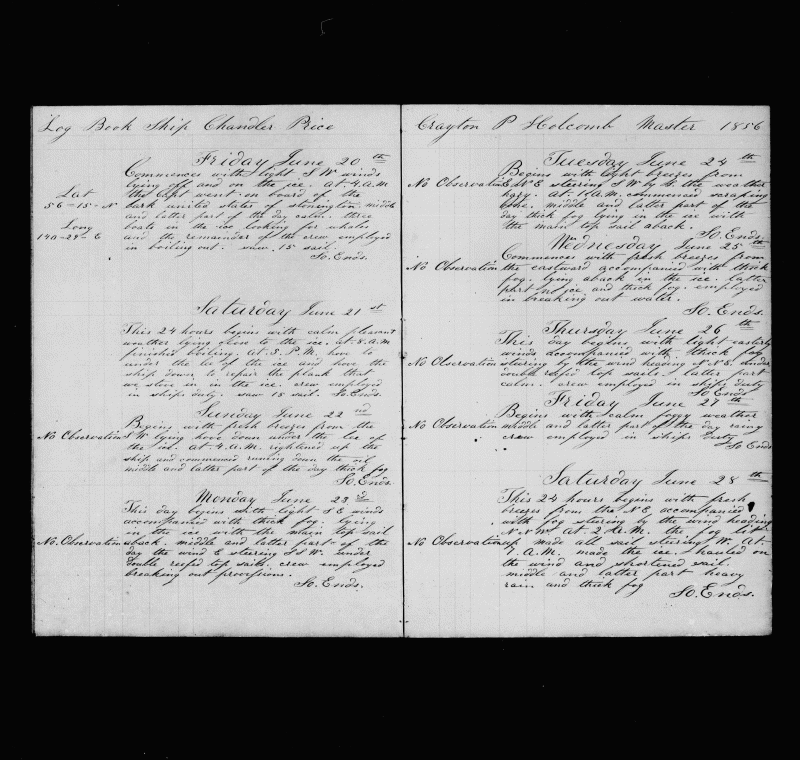 Log Book Ship Chandler Price
Friday June 20th
Commences with light S W winds
lying off and on the ice. At 4. A.M
Lat
the capt went on board of the
56-15-N
bark united states of stonington. middle
and latter part of the day calm. three
Long
boats in the ice looking for whales
140-29-E
and the remainder of the crew employed
in boiling out. saw 15 sail.
So. Ends.
Saturday June 21st
This 24 hours begins with calm pleasant
weather lying close to the ice. at 8. A.M
finished boiling. At 3. P.M. hove to
under the lee of the ice and hove the
ship down to repair the plank that
we stove in in the ice. crew employed
in ships duty. saw 15 sail. So. Ends.
Sunday June 22nd
Begins with fresh breezes from the
No Observation S W lying hove down under the lee of
the ice. At 4. A.M. rightened up the
ship and commenced running down the oil
middle and latter part of the day thick fog
So. Ends.
Monday June 23rd
This day begins with light S E winds
accompanied with thick fog. lying
in the ice with the main top sail
No. Observation aback. middle and latter part of the
day the wind E steering S S W. under
double reefed top sails. crew employed
breaking out provisions.
So. Ends.
Crayton P Holcomb Master 1856
Tuesday June 24th
Begins with light breezes from
No Observation E N E steering S W by W. the weather
hazy. at 1 A.M. commenced scraping
bone. middle and latter part of the
day thick fog lying in the ice with
the main top sail aback.
So. Ends.
Wednesday June 25th
Commences with fresh breezes from
No Observation the eastward accompanied with thick
fog. lying aback in the ice. latter
part no ice and thick fog. employed
in breaking out water.
So. Ends.
Thursday June 26th
This day begins with light easterly
winds accompanied with thick fog
No Observation steering by the wind heading N N E. under
double reefed top sails. latter part
calm. crew employed in ships duty
So Ends
Friday June 27th
Begins with calm foggy weather
No Observation middle and latter part of the day rainy
crew employed in ships Duty
So Ends
Saturday June 28th
This 24 hours begins with fresh
breezes from the N E, accompanied
with fog steering by the wind heading
N N W. At. 2 A.M. the fog lit
No Observation up made all sail steering W. At.
7. A.M. made the ice. hauled on
the wind and shortened sail.
middle and latter part heavy
rain and thick fog
So. Ends.